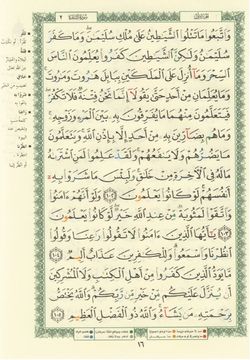 الجزء الأول ٢ سورة البقرة
وَٱتَّبَعُوا۟ مَا تَتْلُوا۟ ٱلشَّيَٰطِينُ عَلَىٰ مُلْكِ سُلَيْمَٰنَ ۖ وَمَا كَفَرَ
سُلَيْمَٰنُ وَلَٰكِنَّ ٱلشَّيَٰطِينَ كَفَرُوا۟ يُعَلِّمُونَ ٱلنَّاسَ
ٱلسِّحْرَ وَمَآ أُنزِلَ عَلَى ٱلْمَلَكَيْنِ بِبَابِلَ هَٰرُوتَ وَمَٰرُوتَ ۚ
وَمَا يُعَلِّمَانِ مِنْ أَحَدٍ حَتَّىٰ يَقُولَآ إِنَّمَا نَحْنُ فِتْنَةٌ فَلَا تَكْفُرْ ۖ
فَيَتَعَلَّمُونَ مِنْهُمَا مَا يُفَرِّقُونَ بِهِۦ بَيْنَ ٱلْمَرْءِ وَزَوْجِهِۦ ۚ
وَمَا هُم بِضَآرِّينَ بِهِۦ مِنْ أَحَدٍ إِلَّا بِإِذْنِ ٱللَّهِ ۚ وَيَتَعَلَّمُونَ
مَا يَضُرُّهُمْ وَلَا يَنفَعُهُمْ ۚ وَلَقَدْ عَلِمُوا۟ لَمَنِ ٱشْتَرَىٰهُ
مَا لَهُۥ فِى ٱلْءَاخِرَةِ مِنْ خَلَٰقٍ ۚ وَلَبِئْسَ مَا شَرَوْا۟ بِهِۦٓ
أَنفُسَهُمْ ۚ لَوْ كَانُوا۟ يَعْلَمُونَ ١٠٢ وَلَوْ أَنَّهُمْ ءَامَنُوا۟
وَٱتَّقَوْا۟ لَمَثُوبَةٌ مِّنْ عِندِ ٱللَّهِ خَيْرٌ ۖ لَّوْ كَانُوا۟ يَعْلَمُونَ
١٠٣ يَٰٓأَيُّهَا ٱلَّذِينَ ءَامَنُوا۟ لَا تَقُولُوا۟ رَٰعِنَا وَقُولُوا۟
ٱنظُرْنَا وَٱسْمَعُوا۟ ۗ وَلِلْكَٰفِرِينَ عَذَابٌ أَلِيمٌ ١٠٤
مَّا يَوَدُّ ٱلَّذِينَ كَفَرُوا۟ مِنْ أَهْلِ ٱلْكِتَٰبِ وَلَا ٱلْمُشْرِكِينَ
أَن يُنَزَّلَ عَلَيْكُم مِّنْ خَيْرٍ مِّن رَّبِّكُمْ ۗ وَٱللَّهُ يَخْتَصُّ
بِرَحْمَتِهِۦ مَن يَشَآءُ ۚ وَٱللَّهُ ذُو ٱلْفَضْلِ ٱلْعَظِيمِ ١٠٥
١٦